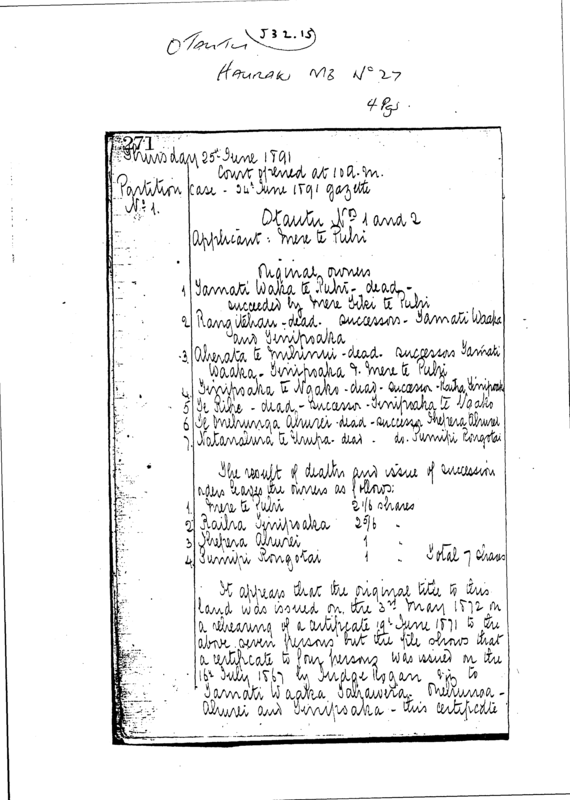 OTAUTU 532.15
HAURAKI MB No 27
4 Pgs.
271
Thursday 25th June 1891
Court opened at 10 a.m.
Partition case - 24th June 1891 gazette
No. 1.
Otautu Nos 1 and 2
Applicant: Mere te Puhi
Original owners
1 Tamati Waka te Puhi - dead -
succeeded by Mere Titi te Puhi
2 - dead. successors - Tamati Waaka
and Tinipoaka
3. te - dead. successors Tamati
Waaka - Tinipoaka & Mere te Puhi
4 Tinipoaka te Ngako - dead - successor - Raiha Tinipoaka
5 Te - dead - successor - Tinipoaka te Ngako
6 Te Ahurei - dead - successor Ahurei
7. te - dead - do. Rongotai
The result of deaths and issue of succession
orders leaves the owners as follows:
1. Mere te Puhi 2 1/6 shares
2 Raiha Tinipoaka 2 5/6 "
3 Ahurei 1 "
4. Rongotai 1 " Total 7 shares
It appears that the original title to this
land was issued on the 3rd May 1872 on
a rehearing of a certificate 19th June 1871 to the
above seven persons but the file shows that
a certificate to four persons was issued on the
16th July 1867 by Judge Rogan to
Tamati Waaka -
Ahurei and Tinipoaka - this certificate